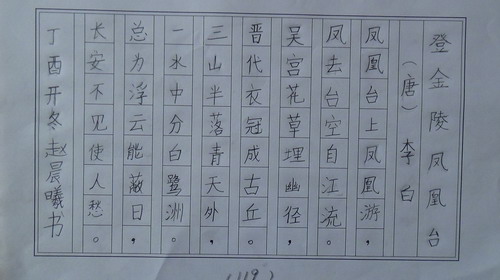 登金陵凤凰台
（唐）李白
凤凰台上凤凰游，
凤去台空自江流。
吴宫花草埋幽径，
晋代衣冠成古丘。
三山半落青天外，
一水中分白鹭洲。
总为浮云能蔽日，
长安不见使人愁。
丁酉开冬赵晨曦书
(119)